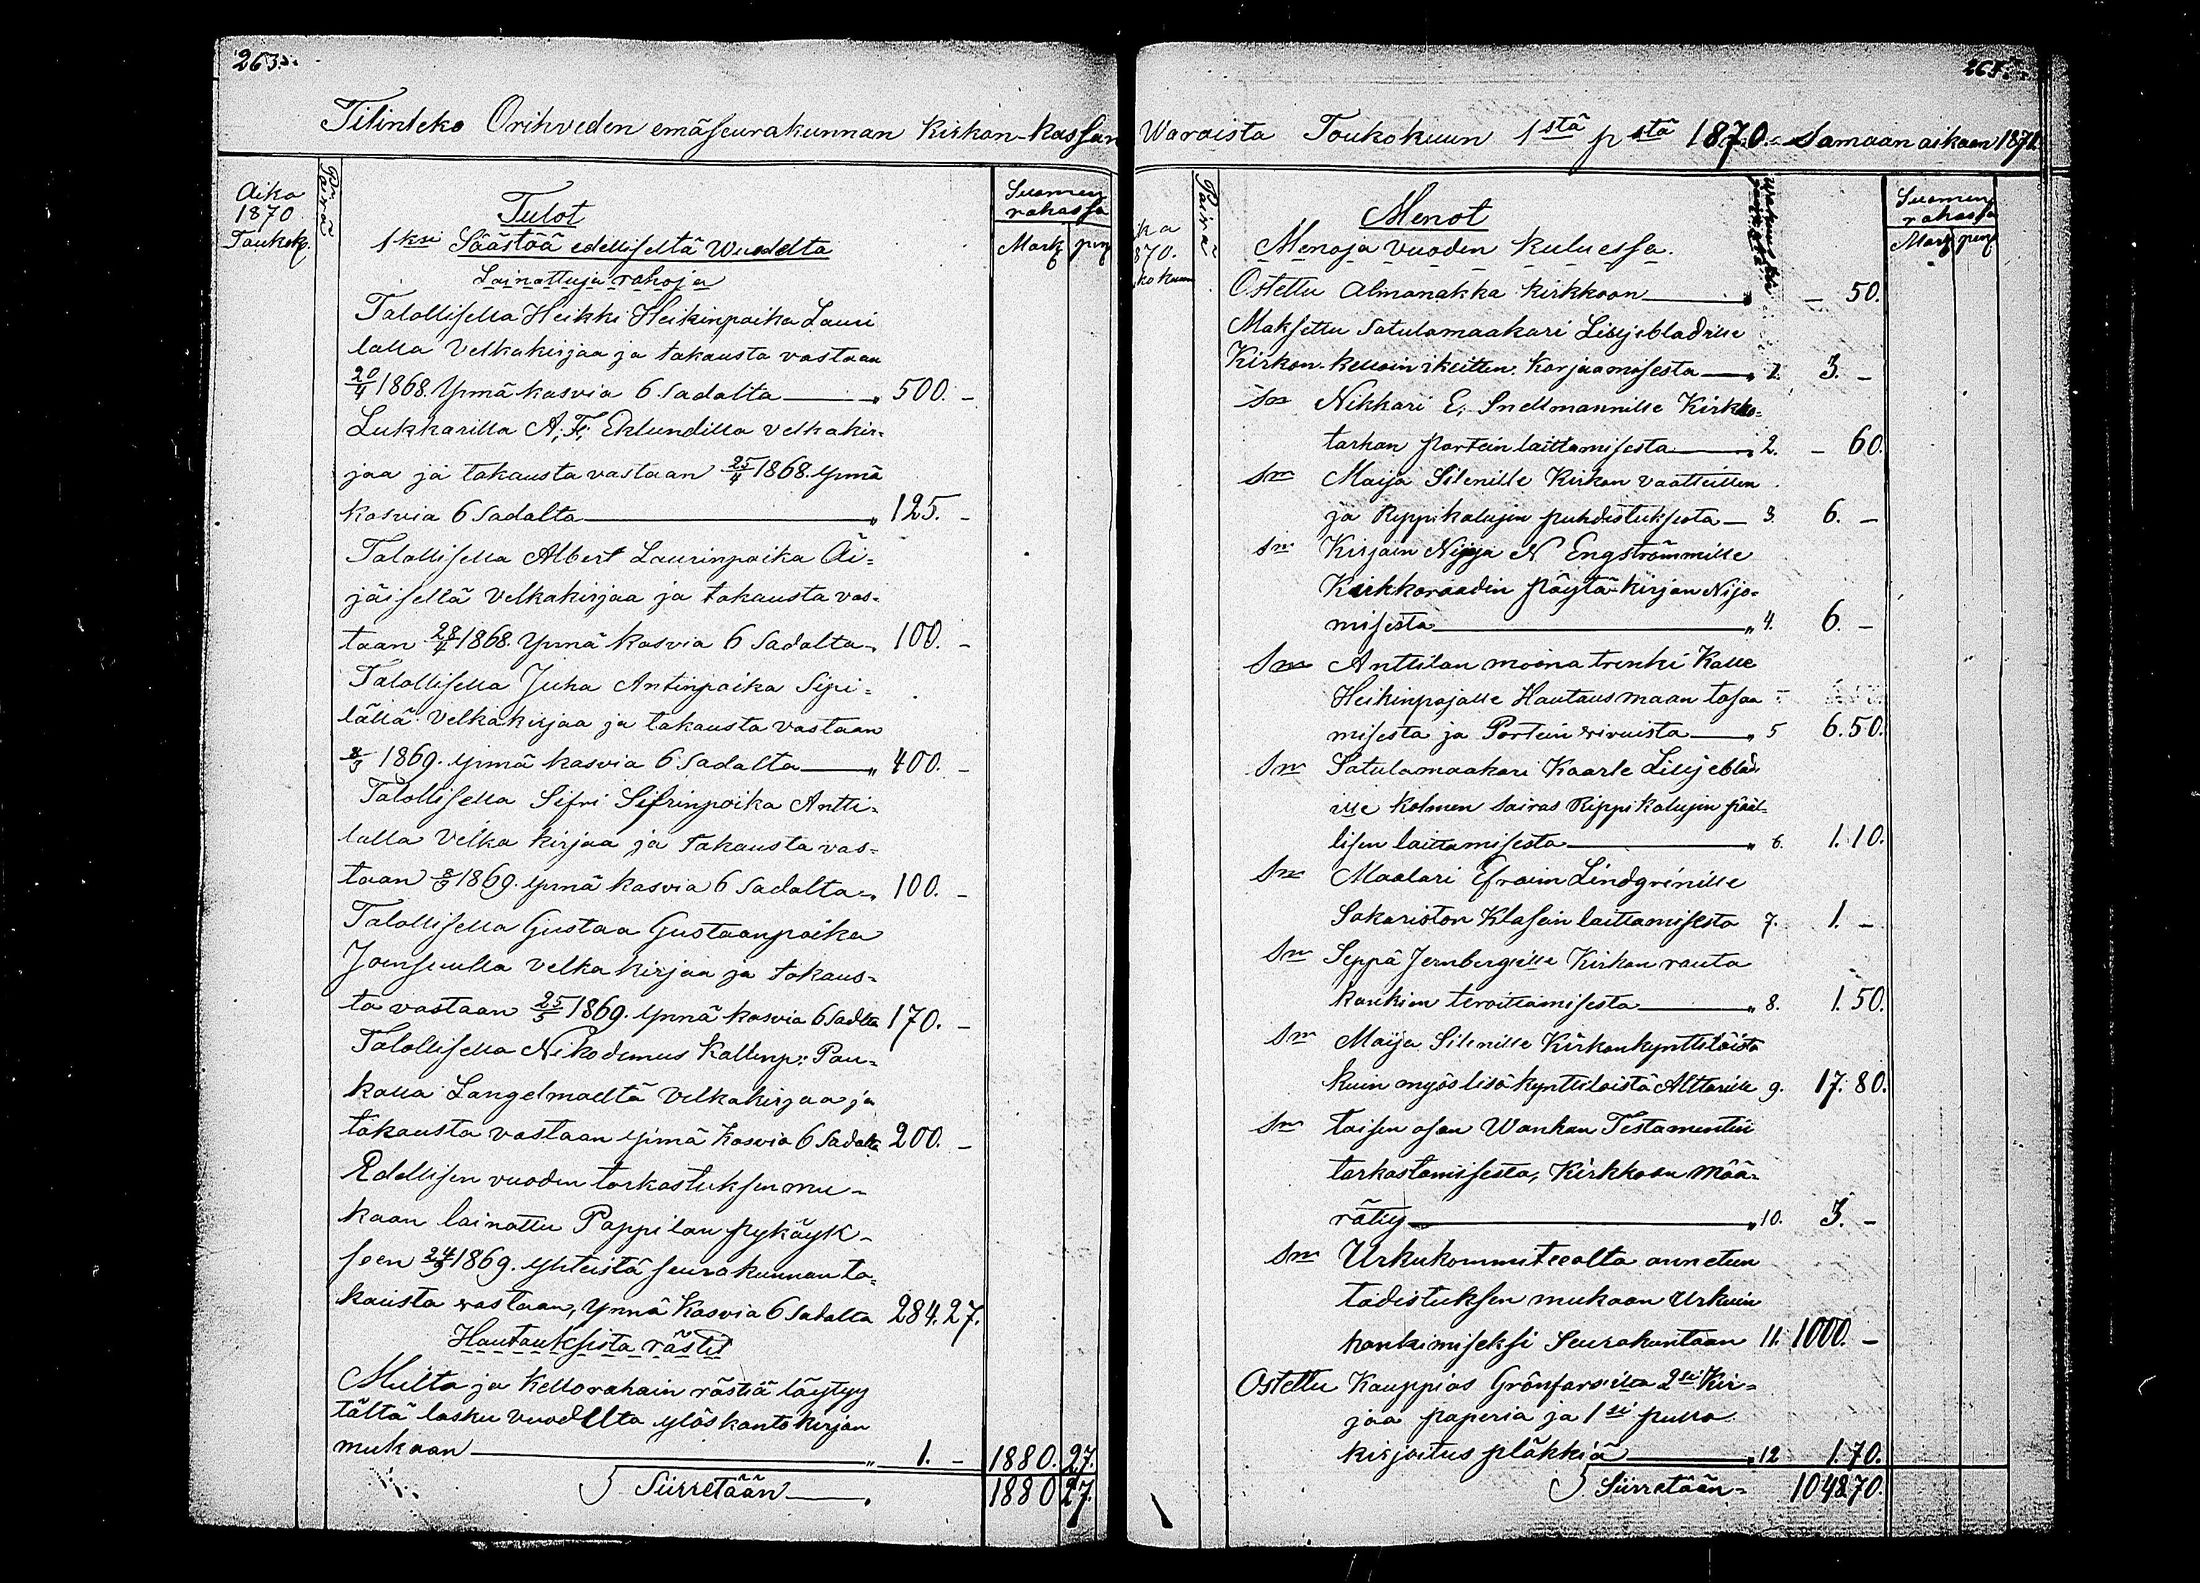 263.
Tilinteko Orihveden emäseurakunnan Kirkon-Kassan
Aika
1870
Toukok.
Päivä
Suomen
rahassa
Mark
pen
Tulot
1ksi Säästöä edelliseltä Wuodelta
Lainattuja rahoja
Talollisella Heikki Heikinpoika Lauri
lalla Velkakirjaa ja takausta vastaan
20/4 1868. Ynnä kasvia 6 Sadalta — „ 500. -
Lukkarilla A. F. Eklundilla velkakir-
jaa ja takausta vastaan 25/4 1868. ynnä
kasvia 6 Sadalta — „ 125. -
Talollisella Albert Laurinpoika Äi-
jäisellä Velkakirjaa ja takausta vas-
taan 28/4 1868. Ynnä kasvia 6 Sadalta „ 100. -
Talollisella Juha Antinpoika Sipi-
lällä Velkakirjaa ja takausta vastaan
1869. ynnä kasvia 6 Sadalta — „ 400. -
Talollisella Sifri Sifrinpoika Antti-
lalla Velka kirjaa ja takausta vas-
taan 1869. ynnä kasvia 6 Sadalta „ 100. -
Talollisella Gustaa Gustaanpoika
Joensuulla Velka kirjaa ja takaus-
ta vastaan 25/5 1869. ynnä kasvia 6 Sadlta 170. -
Talollisella Nikodemus Kallenp: Pau-
kalla Langelmaelta Velkakirjaa ja
takausta vastaan ynnä Kasvia 6 Sadalta 200. -
Edellisen vuoden tarkastuksen mu-
kaan lainattu Pappilan pykäyk-
seen 24/9 1869. yhteistä seurakunnan ta-
kausta vastaan, ynnä Kasvia 6 Sadalta 284.27.
Hautauksista rästit
Multa ja Kellorahain rästiä löytyy
tältä lasku vuodelta ylöskantokirjan
mukaan — „ 1. - 1880. 27.
Siirretään — 1880 27.
Waroista Toukokuun 1stä pstä 1870. Samaan aikaan 1871.
ka
870.
kokuun
Päivä
Suomen
rahassa
Mark
pen
Menot
Menoja vuoden kuluessa.
Ostettu Almanakka kirkkoon — „ - 50.
Maksettu Satulamaakari Liljebladille
Kirkon kelloin ikeitten Korjaamisesta — „ 1. 3. -
Sm Nikkari E. Snellmannille Kirkko-
tarhan Portein laittamisesta — „ 2. - 60.
Sm Maija Silenille Kirkon vaatteitten
ja Rippikalujin puhdistuksesta — 3. 6. -
Sm Kirjain Nijoja N Engströmmille
Kirkkoraadin Pöytä-kirjan Nijo-
misesta — „ 4. 6. -
Sm Anttilan moona trenki Kalle
Heikinpojalle Hautausmaan tasaa-
misesta ja Portein — „ 5 6.50.
Sm Satulamaakari Kaarle Liljeblad-
ille Kolmen Sairas Rippikalujin pääl-
lisen laittamisesta — „ 6. 1.10.
Sm Maalari Efraim Lindgrenille
Sakariston Klasein laittamisesta 7. 1. -
Sm Seppä Jernbergille Kirkon rauta
kankien teroittamisesta — „ 8. 1.50.
Sm Maija Silenille Kirkonkynttilöistä
kuin myös lisäkynttilöistä Alttarille 9. 17.80.
Sm toisen osan Wanhan Testamentin
tarkastamisesta, Kirkkoon Mää-
rätty — „ 10. 3. -
Sm Urkukommiteealta annetun
todistuksen mukaan Urkuin
hankimiseksi Seurakuntaan 11. 1000. -
Ostettu Kauppias Grönforsilta 2si Kir-
jaa paperia ja 1si pullo
kirjoitus pläkkiä — „ 12 1.70.
Siirretään - 1048.70.